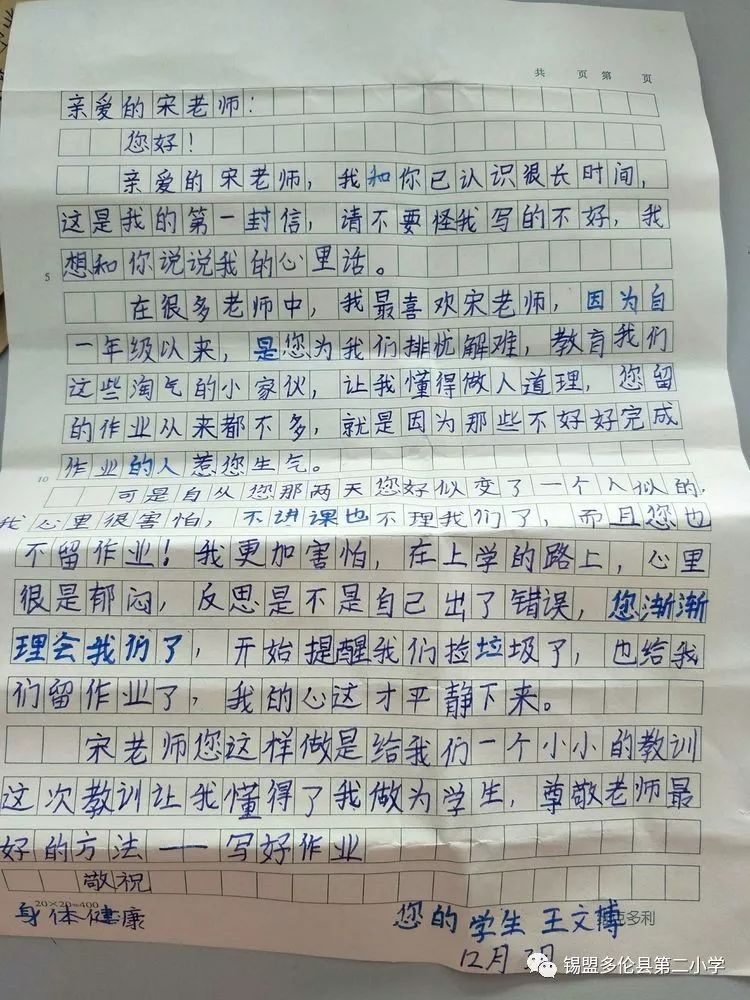 共 页 第 页
亲爱的宋老师：
您好！
亲爱的宋老师，我和你已认识狠长时间，
这是我的第一封信，请不要怪我写的不好，我
5
想和你说说我的心里话。
在很多老师中，我最喜欢宋老师，因为自
一年级以来，是您为我们排忧解难，教育我们
这些淘气的小家伙，让我懂得做人道理，您留
的作业从来都不多，就是因为那些不好好完成
10
作业的人惹您生气。
可是自从您那两天您好似变了一个人似的，
我心里很害怕，不讲课也不理我们了，而且您也
不留作业！我更加害怕，在上学的路上，心里
很是郁闷，反思是不是自己出了错误，您渐渐
理会我们了，开始提醒我们捡垃圾了，也给我
们留作业了，我的心这才平静下来。
宋老师您这样做是给我们一个小小的教训
这次教训让我懂得了我做为学生，尊敬老师最
好的方法——写好作业
敬祝
20×20=400
身体健康
您的学生 王文博
克多利
12月3日
锡盟多伦县第二小学